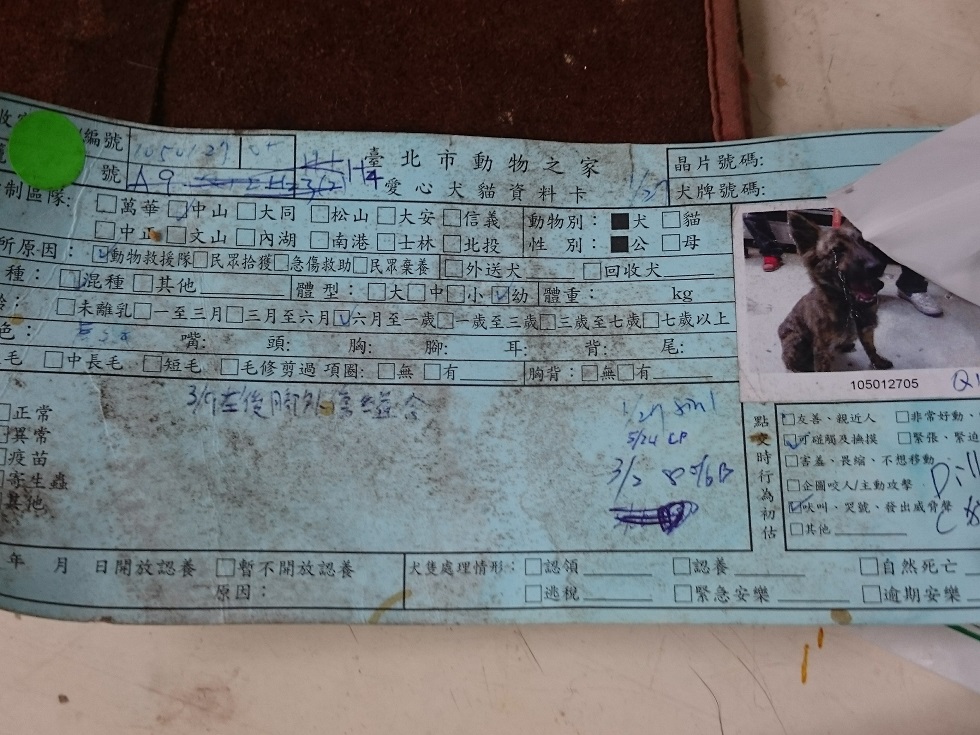 編號 1050127 05
臺北市動物之家
晶片號碼:
號 A9 H4
愛心犬貓資料卡 1/27
犬牌號碼:
制區隊: □萬華 ☑中山 □大同 □松山 □大安 □信義 動物別: ■犬 □貓
□中正 □文山 □內湖 □南港 □士林 □北投 性 別: ■公 □母
所原因: ☑動物救援隊 □民眾拾獲 □急傷救助 □民眾棄養 □外送犬 □回收犬
種: ☑混種 □其他 體型: □大 □中 □小 ☑幼 體重: kg
□未離乳 □一至三月 □三月至六月 ☑六月至一歲 □一歲至三歲 □三歲至七歲 □七歲以上
色: 嘴: 頭: 胸: 腳: 耳: 背: 尾:
毛 □中長毛 □短毛 □毛修剪過 項圈: □無 □有 胸背: □無 □有
105012705
3/9左後腳外傷
1/27 5in1
5/24 CP
3/2
□正常
□異常
□疫苗
□寄生蟲
□其他
點交時行為初估
□友善、親近人 □非常好動、
☑可碰觸及撫摸 □緊張、緊迫
□害羞、畏縮、不想移動
□企圖咬人/主動攻擊
☑吠叫、哭號、發出威脅聲
□其他
年 月 日開放認養 □暫不開放認養
原因:
犬隻處理情形: □認領 □認養 □自然死亡
□逃稅 □緊急安樂 □逾期安樂